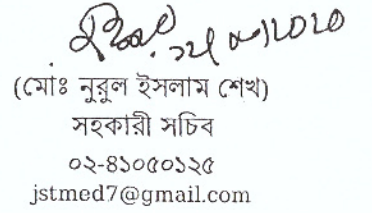 (মোঃ নুরুল ইসলাম শেখ)
সহকারী সচিব
০২-৪১০৫০১২৫
jstmed7@gmail.com